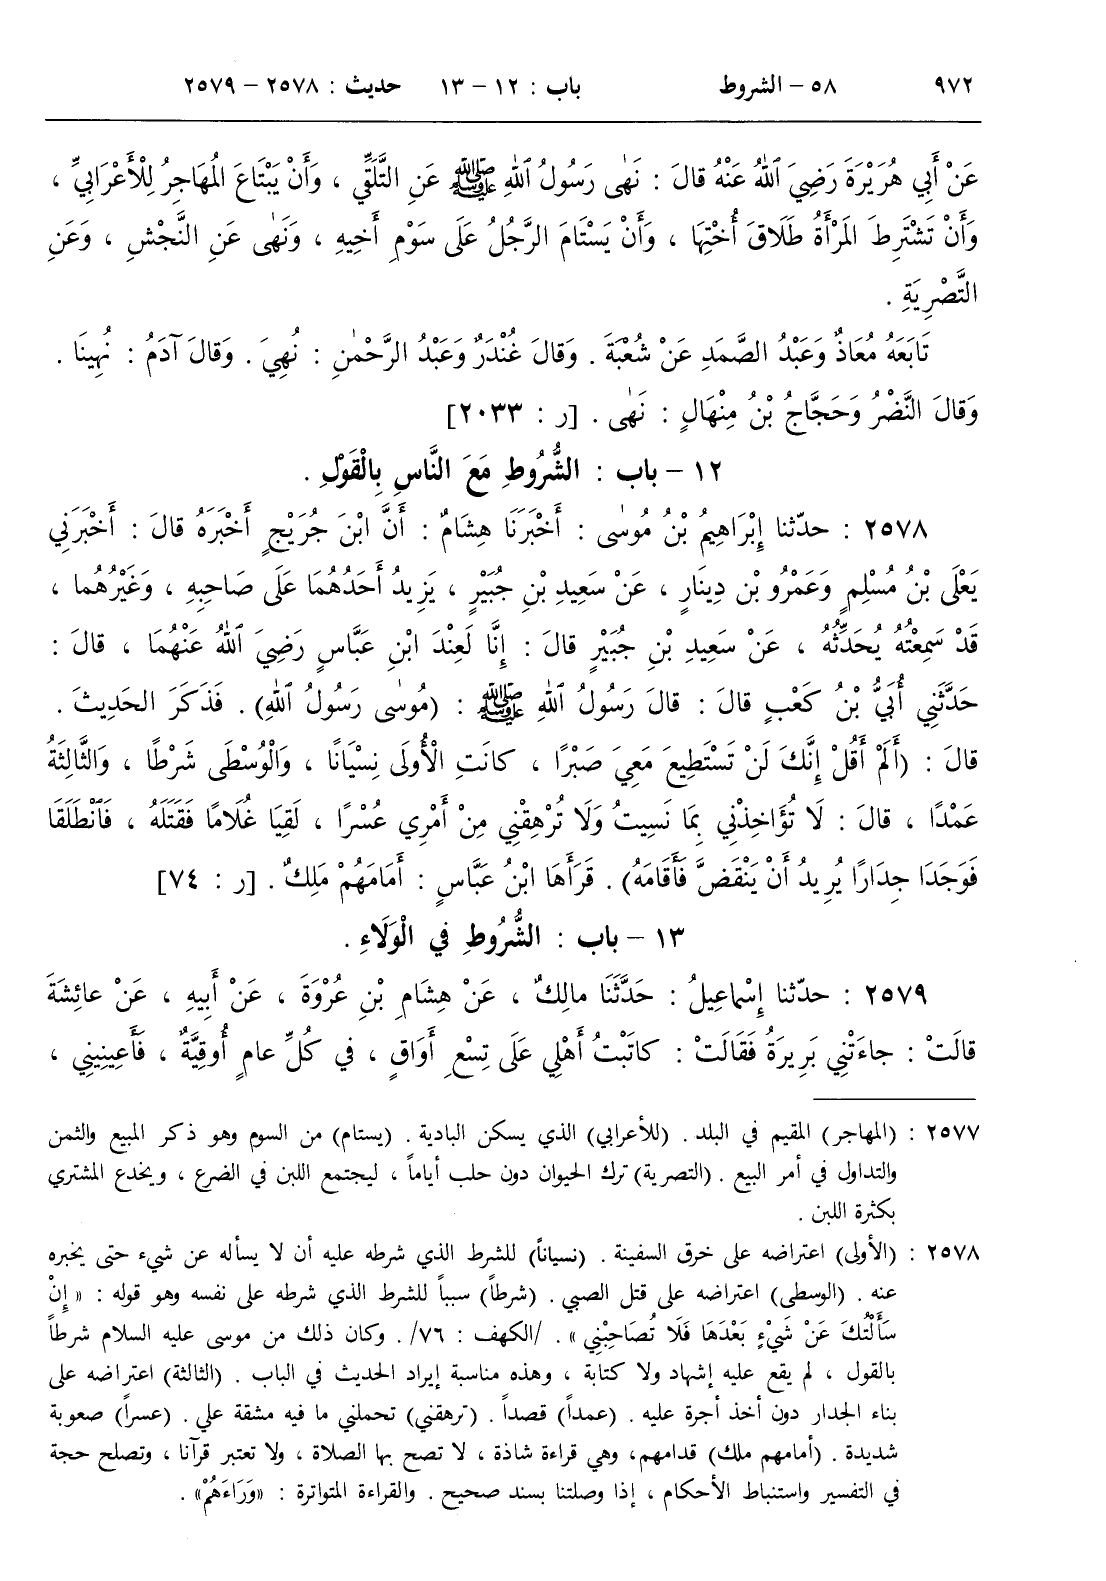 ٩٧٢ ٥٨ – الشروط باب : ١٢ – ١٣ حديث : ٢٥٧٨ – ٢٥٧٩
عَنْ أَبِي هُرَيْرَةَ رَضِيَ ٱللهُ عَنْهُ قالَ : نَهٰى رَسُولُ ٱللهِ ﷺ عَنِ التَّلَقِّي ، وَأَنْ يَبْتَاعَ المُهَاجِرُ لِلْأَعْرَابِيِّ ،
وَأَنْ تَشْتَرِطَ المَرْأَةُ طَلَاقَ أُخْتِهَا ، وَأَنْ يَسْتَامَ الرَّجُلُ عَلَى سَوْمِ أَخِيهِ ، وَنَهٰى عَنِ النَّجْشِ ، وَعَنِ
التَّصْرِيَةِ .
تَابَعَهُ مُعَاذٌ وَعَبْدُ الصَّمَدِ عَنْ شُعْبَةَ . وَقالَ غُنْدَرٌ وَعَبْدُ الرَّحْمٰنِ : نُهِيَ . وَقالَ آدَمُ : نُهِينَا .
وَقالَ النَّضْرُ وَحَجَّاجُ بْنُ مِنْهَالٍ : نَهٰى . [ر : ٢٠٣٣]
١٢ – باب : الشُّرُوطِ مَعَ النَّاسِ بِالْقَوْلِ .
٢٥٧٨ : حدّثنا إِبْرَاهِيمُ بْنُ مُوسٰى : أَخْبَرَنَا هِشَامٌ : أَنَّ ابْنَ جُرَيْجٍ أَخْبَرَهُ قالَ : أَخْبَرَنِي
يَعْلَى بْنُ مُسْلِمٍ وَعَمْرُو بْن دِينَارٍ ، عَنْ سَعِيدِ بْنِ جُبَيْرٍ ، يَزِيدُ أَحَدُهُمَا عَلَى صَاحِبِهِ ، وَغَيْرُهُما ،
قَدْ سَمِعْتُهُ يُحَدِّثُهُ ، عَنْ سَعِيدِ بْنِ جُبَيْرٍ قالَ : إِنَّا لَعِنْدَ ابْنِ عَبَّاسٍ رَضِيَ ٱللهُ عَنْهُمَا ، قالَ :
حَدَّثَنِي أُبَيُّ بْنُ كَعْبٍ قالَ : قالَ رَسُولُ ٱللهِ ﷺ : (مُوسٰى رَسُولُ ٱللهِ) . فَذَكَرَ الحَدِيثَ .
قالَ : (أَلَمْ أَقُلْ إِنَّكَ لَنْ تَسْتَطِيعَ مَعِيَ صَبْرًا ، كانَتِ الْأُولَى نِسْيَانًا ، وَالْوُسْطَى شَرْطًا ، وَالثَّالِثَةُ
عَمْدًا ، قالَ : لَا تُؤَاخِذْنِي بِمَا نَسِيتُ وَلَا تُرْهِقْنِي مِنْ أَمْرِي عُسْرًا ، لَقِيَا غُلَامًا فَقَتَلَهُ ، فَٱنْطَلَقَا
فَوَجَدَا جِدَارًا يُرِيدُ أَنْ يَنْقَضَّ فَأَقَامَهُ) . قَرَأَهَا ابْنُ عَبَّاسٍ : أَمَامَهُمْ مَلِكٌ . [ر : ٧٤]
١٣ – باب : الشُّرُوطِ فِي الْوَلَاءِ .
٢٥٧٩ : حدّثنا إِسْماعِيلُ : حَدَّثَنَا مالِكٌ ، عَنْ هِشَامِ بْنِ عُرْوَةَ ، عَنْ أَبِيهِ ، عَنْ عائِشَةَ
قالَتْ : جاءَتْنِي بَرِيرَةُ فَقَالَتْ : كاتَبْتُ أَهْلِي عَلَى تِسْعِ أَوَاقٍ ، فِي كُلِّ عامٍ أُوقِيَّةٌ ، فَأَعِينِينِي ،
٢٥٧٧ : (المهاجر) المقيم في البلد . (للأعرابي) الذي يسكن البادية . (يستام) من السوم وهو ذكر المبيع والثمن
والتداول في أمر البيع . (التصرية) ترك الحيوان دون حلب أياماً ، ليجتمع اللبن في الضرع ، ويخدع المشتري
بكثرة اللبن .
٢٥٧٨ : (الأولى) اعتراضه على خرق السفينة . (نسياناً) للشرط الذي شرطه عليه أن لا يسأله عن شيء حتى يخبره
عنه . (الوسطى) اعتراضه على قتل الصبي . (شرطاً) سبباً للشرط الذي شرطه على نفسه وهو قوله : « إِنْ
سَأَلْتُكَ عَنْ شَيْءٍ بَعْدَهَا فَلَا تُصَاحِبْنِي » . /الكهف : ٧٦/. وكان ذلك من موسى عليه السلام شرطاً
بالقول ، لم يقع عليه إشهاد ولا كتابة ، وهذه مناسبة إيراد الحديث في الباب . (الثالثة) اعتراضه على
بناء الجدار دون أخذ أجرة عليه . (عمداً) قصداً . (ترهقني) تحملني ما فيه مشقة علي . (عسراً) صعوبة
شديدة . (أمامهم ملك) قدامهم، وهي قراءة شاذة ، لا تصح بها الصلاة ، ولا تعتبر قرآنا ، وتصلح حجة
في التفسير واستنباط الأحكام ، إذا وصلتنا بسند صحيح . والقراءة المتواترة : «وَرَاءَهُمْ» .